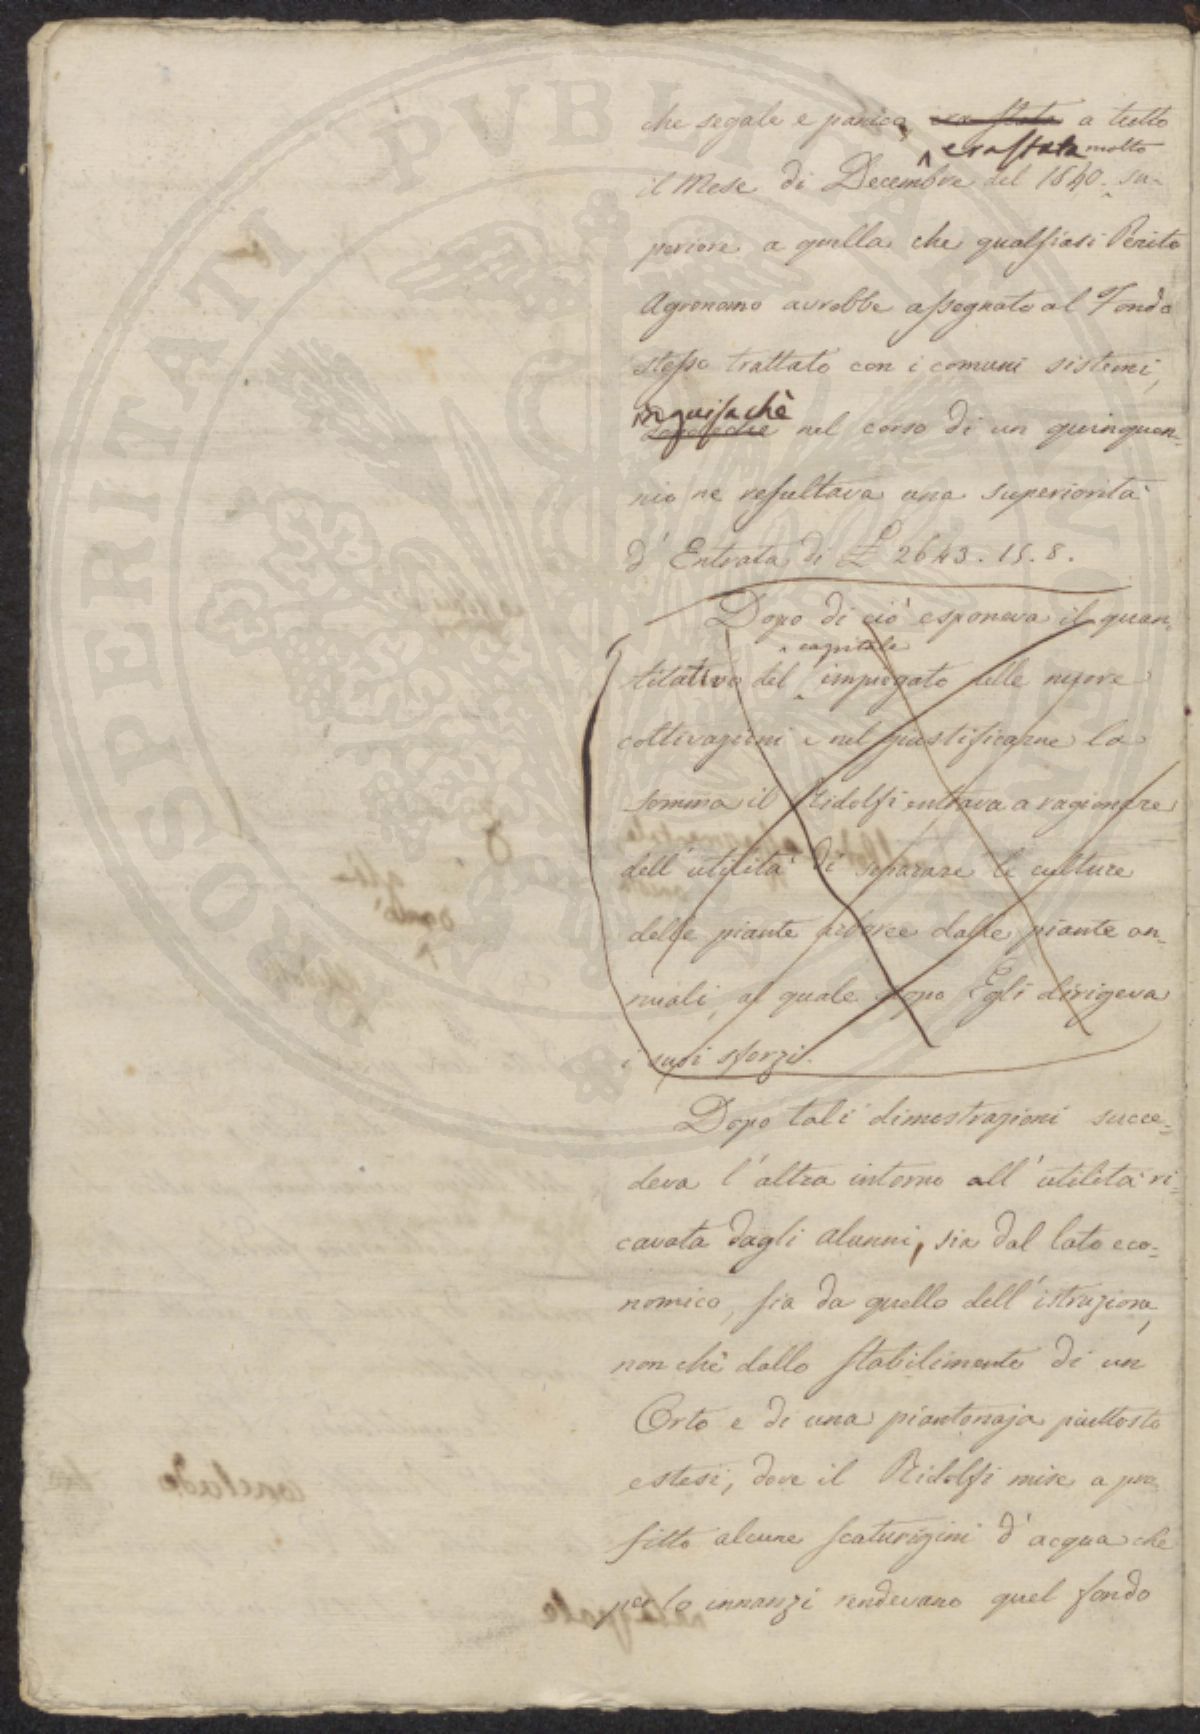 che segale e panico, era stata a tutto
era stata molto
il Mese di Decembre del 1840. su-
periore a quella che qualsiasi Perito
Agronomo avrebbe assegnato al Fondo
stesso trattato con i comuni sistemi,
in guisa chè
nel corso di un quinquen-
nio ne resultava una superiorità
d'Entrata di £ 2643. 15. 8.
Dopo di ciò esponeva il quan-
capitale
titativo del impiegato nelle nuove
coltivazioni e nel giustificarne la
somma il Ridolfi entrava a ragionare
dell'utilità di separare le culture
delle piante arboree dalle piante an-
nuali, al quale scopo Egli dirigeva
i suoi sforzi.
Dopo tali dimostrazioni succe-
deva l'altra intorno all'utilità ri-
cavata dagli alunni, sia dal lato eco-
nomico, sia da quello dell'istruzione,
non chè dallo stabilimento di un
Orto e di una piantonaja piuttosto
estesi, dove il Ridolfi mise a pro-
fitto alcune scaturigini d'acqua che
per lo innanzi rendevano quel fondo
PROSPERITATI PUBLICAE AUGENDAE